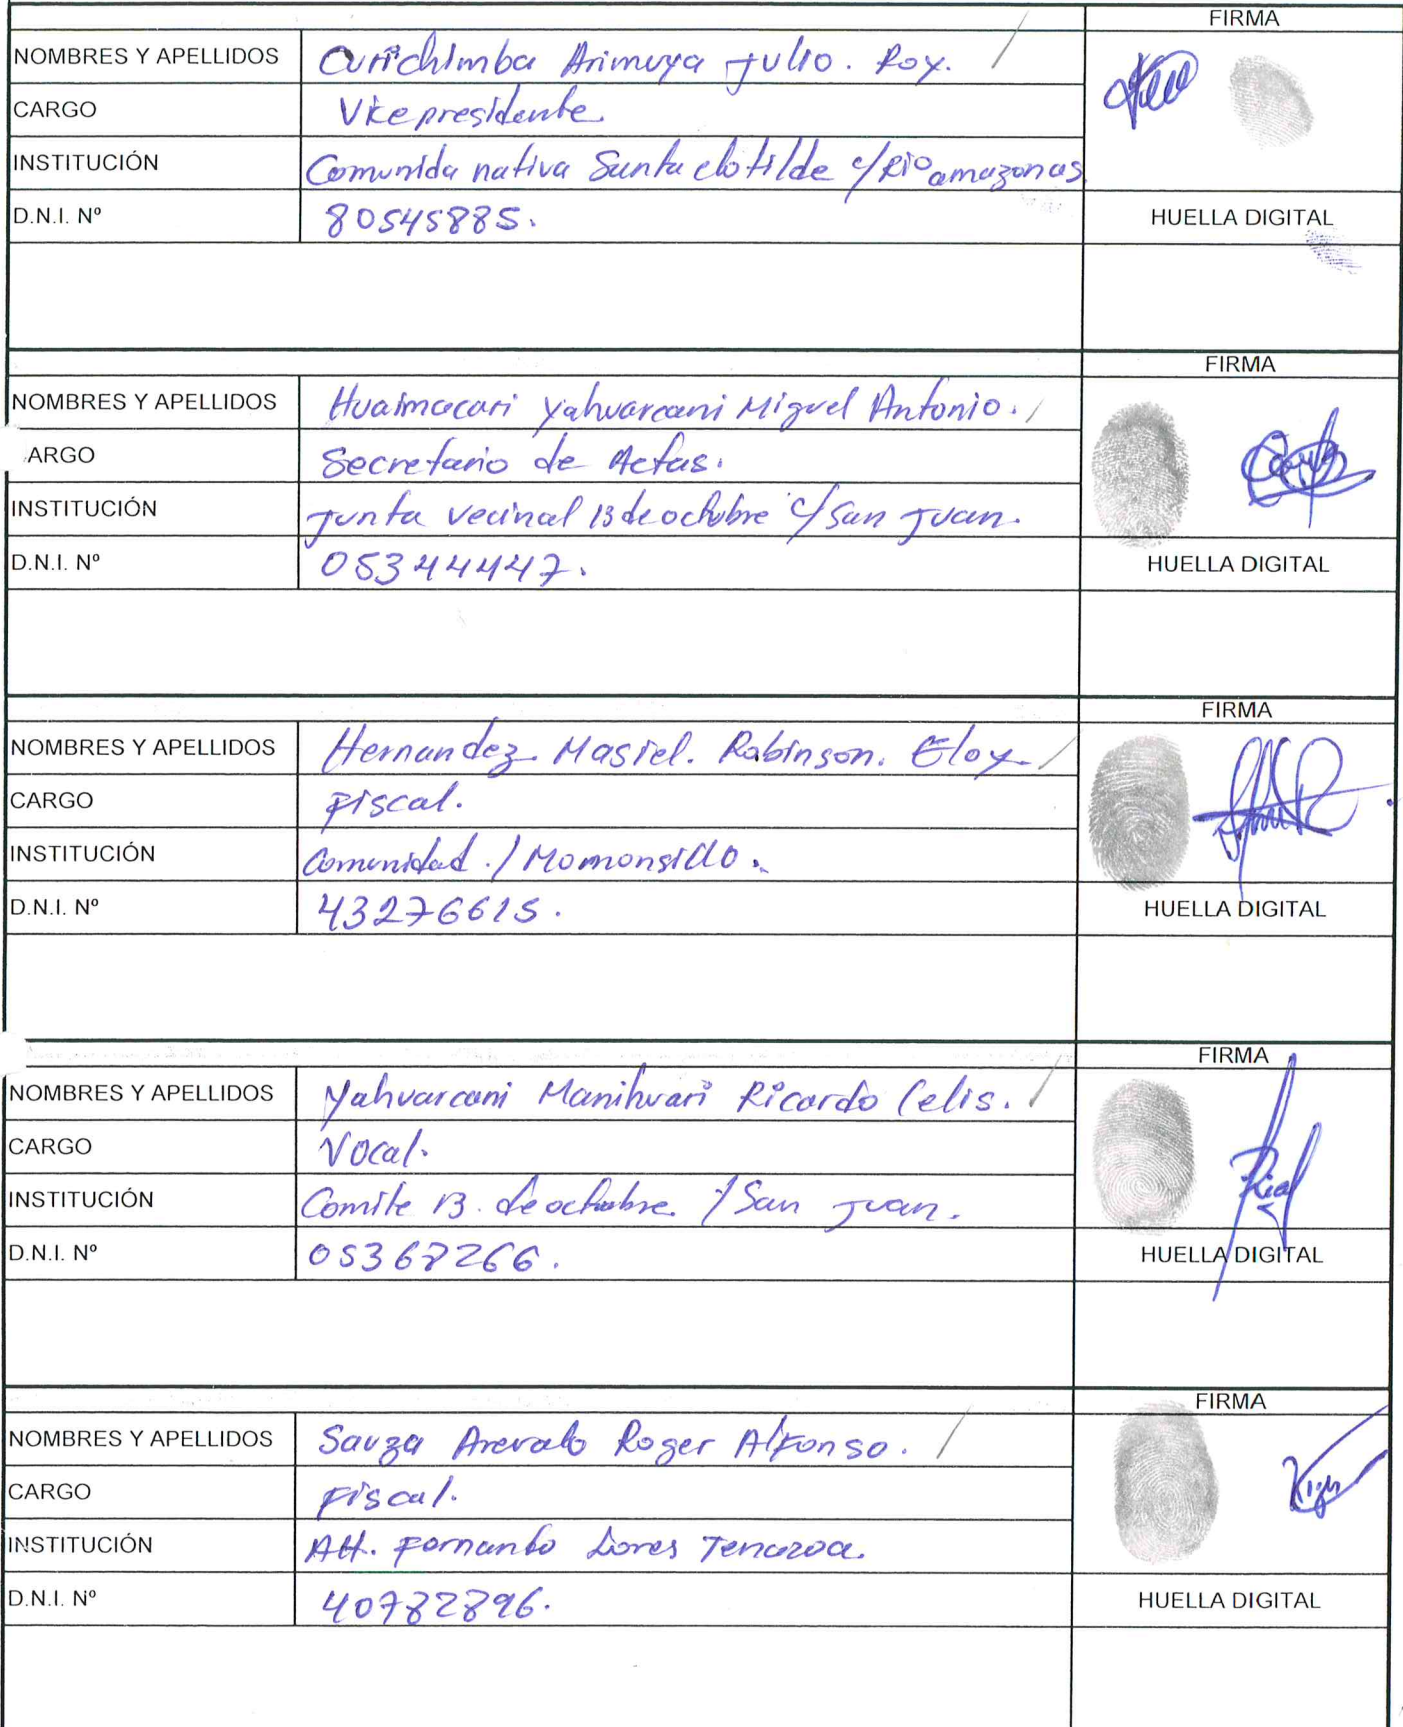 FIRMA
NOMBRES Y APELLIDOS Curichimba Arimuya Julio. Roy.
CARGO Vicepresidente
INSTITUCIÓN Comunida nativa Santa clotilde c/Rio amazonas
D.N.I. Nº 80545885. HUELLA DIGITAL
FIRMA
NOMBRES Y APELLIDOS Huaimacari Yahuarcani Miguel Antonio.
ARGO Secretario de Actas.
INSTITUCIÓN Junta vecinal 13 de octubre c/San Juan.
D.N.I. Nº 05344447. HUELLA DIGITAL
FIRMA
NOMBRES Y APELLIDOS Hernandez Masiel. Robinson. Eloy
CARGO Fiscal.
INSTITUCIÓN Comunidad / Momonsillo.
D.N.I. Nº 43276615. HUELLA DIGITAL
FIRMA
NOMBRES Y APELLIDOS Yahuarcani Manihuari Ricardo Celis.
CARGO Vocal.
INSTITUCIÓN Comite 13. de octubre. / San Juan.
D.N.I. Nº HUELLA DIGITAL
FIRMA
NOMBRES Y APELLIDOS Sauza Arevalo Roger Alfonso.
CARGO Fiscal.
INSTITUCIÓN Fernando Lores Tenazoa.
D.N.I. Nº 40782896. HUELLA DIGITAL